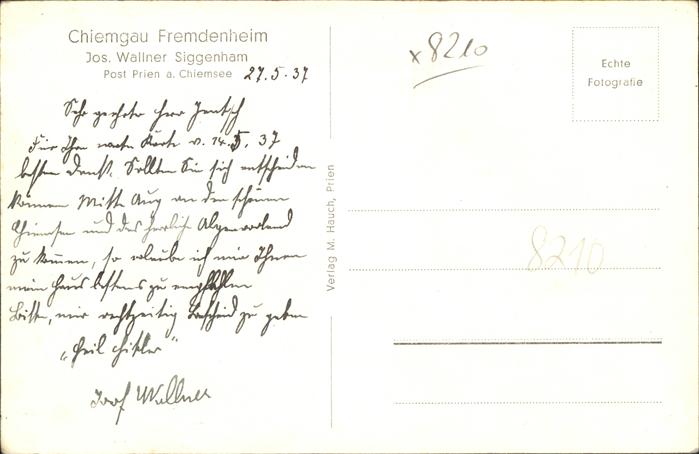 Chiemgau Fremdenheim
Jos. Wallner Siggenham
Post Prien a. Chiemsee 27.5.37
Sehr geehrter Herr Jentsch
Für Ihre werte Karte v. 14.5.37
besten Dank. Sollten Sie sich entscheiden
können Mitte Aug an den schönen
Chiemsee und das herrliche Alpenvorland
zu kommen, so erlaube ich mir Ihnen
mein Haus bestens zu empfehlen
Bitte, mir rechtzeitig Bescheid zu geben
„Heil Hitler"
Josef Wallner
Verlag M. Hauch, Prien
x8210
Echte
Fotografie
8210